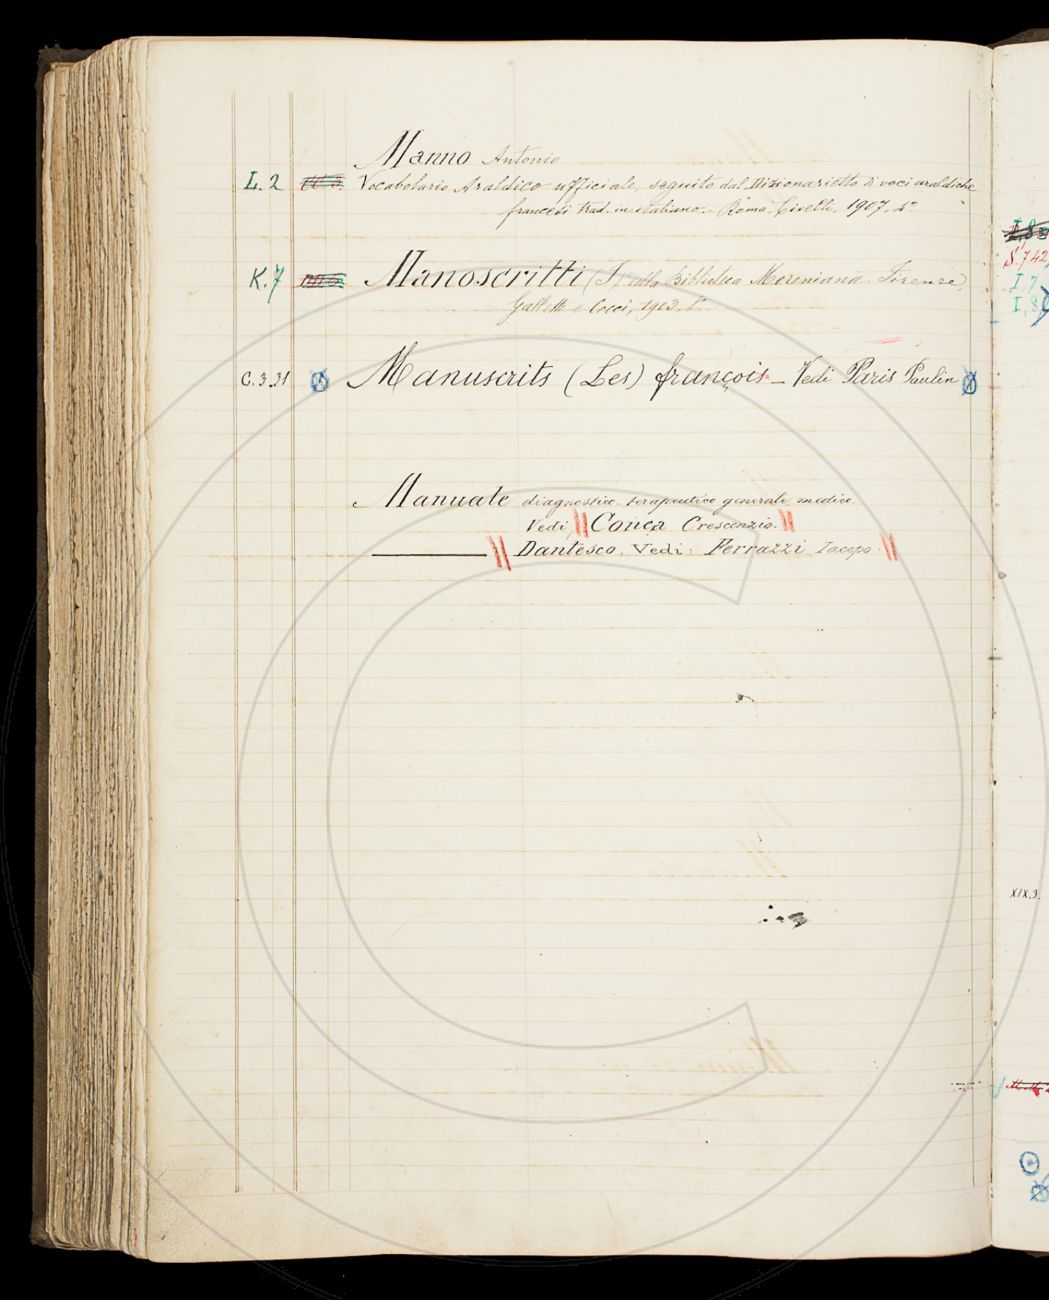 Manno Antonio
L. 2 Vocabolario Araldico ufficiale, seguito dal Dizionarietto di voci araldiche
francesi trad. in italiano. Roma, Civelli, 1907, 4°
K. 7 Manoscritti (I) della Biblioteca Moreniana. Firenze
Galletti e Cocci, 1903, 8°
C. 3. 31 Manuscrits (Les) françois - Vedi Paris Paulin
Manuale diagnostico-terapeutico generale medico.
Vedi Conca Crescenzio.
Dantesco. Vedi: Ferrazzi Iacopo
S. 742
I. 7
I. 8
XIX. 3.